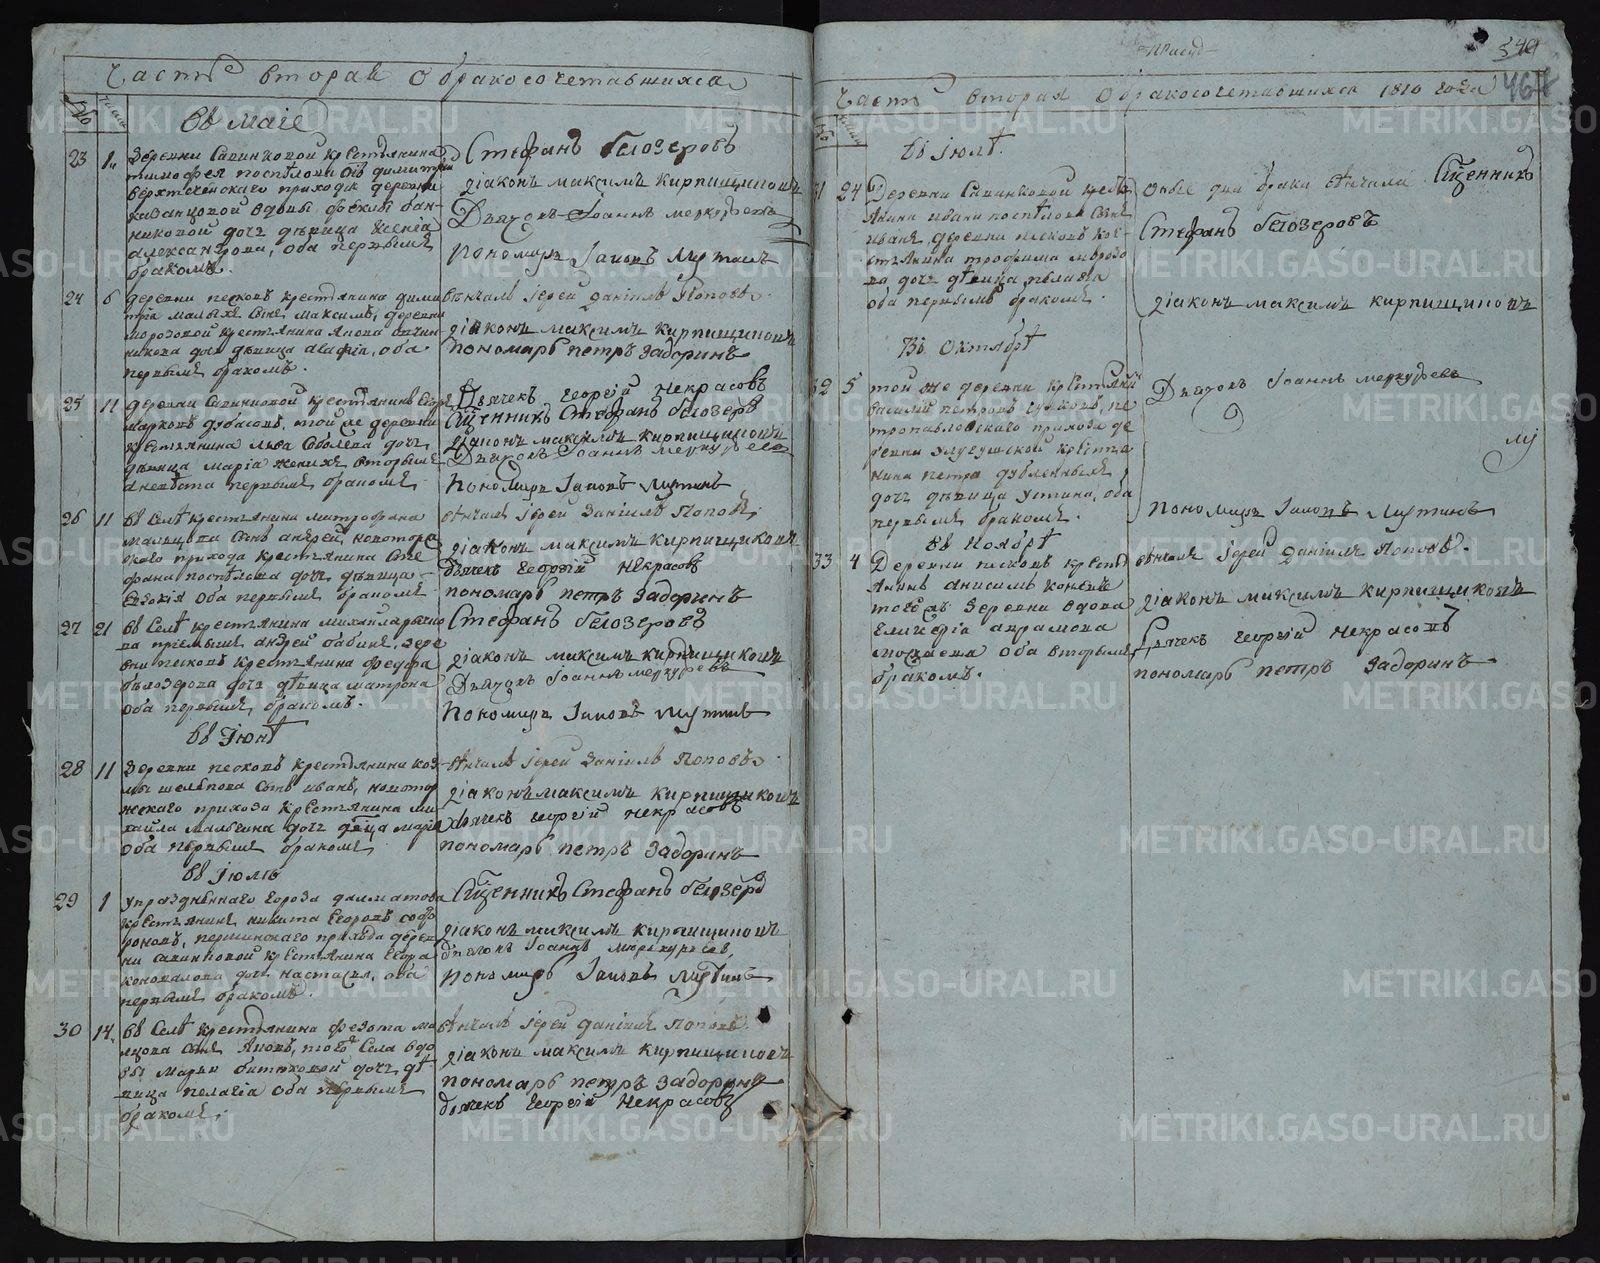 Часть вторая о бракосочетавшихся
въ маіе
23 1
Деревни Савинковой крестьянина
тимофея поспѣлова сынъ димитрій
верхтеченскаго прихода деревни
вдовы феклы бан-
никовой дочь дѣвица Ксенія
александрова, оба первымъ
бракомъ.
Стефанъ Белозеровъ
діаконъ максимъ кирпищиковъ
Дьячокъ Іоаннъ меркурьевъ
пономарь Іаковъ
24 6
деревни песковъ крестьянина дими
трія малыхъ сынъ максимъ, деревни
морозовой крестьянина Якова овчин
никова дочь дѣвица агафія, оба
первымъ бракомъ.
вѣнчалъ іерей даніилъ Поповъ
діаконъ максимъ кирпищиковъ
пономарь петръ Задоринъ
Дьячекъ георгій Некрасовъ
25 11
деревни Савинковой крестьянинъ
марковъ дубасовъ, той же деревни
крестьянина льва Соболева дочь
дѣвица марія женихъ вторымъ
а невѣста первымъ бракомъ
Сщенникъ Стефанъ белозеръ
діаконъ максимъ кирпищиковъ
Дьячокъ Іоаннъ меркурьевъ
пономарь Іаковъ
26 11
въ Селѣ крестьянина митрофана
мальцова сынъ андрей,
скаго прихода крестьянина Сте
фана поспѣлова дочь дѣвица
Евдокія оба первымъ бракомъ
вѣнчалъ іерей Даніилъ Поповъ
діаконъ максимъ кирпищиковъ
дьячекъ Георгій Некрасовъ
пономарь петръ Задоринъ
27 21
въ Селѣ крестьянина михаила
ва пріемышъ андрей бабинъ, дере
вни песковъ крестьянина федора
бѣлозерова дочь дѣвица матрона
оба первымъ бракомъ.
Стефанъ белозеровъ
діаконъ максимъ кирпищиковъ
Дьячокъ Іоаннъ меркурьевъ
пономарь Іаковъ
въ Іюнѣ
28 11
деревни песковъ крестьянина коз
мы шелѣпова сынъ иванъ,
скаго прихода крестьянина ми
хаила малыгина дочь дѣвица марія
оба первымъ бракомъ
вѣнчалъ іерей Даніилъ Поповъ
діаконъ максимъ кирпищиковъ
дьячекъ георгій некрасовъ
пономарь петръ Задоринъ
въ Іюль
29 1
упраздненнаго города далматова
крестьянинъ никита Егоровъ соф
роновъ, першинскаго прихода дерев
ни савинковой крестьянина Егора
коновалова дочь настасья, оба
первымъ бракомъ.
Сщенникъ Стефанъ белозеръ
діаконъ максимъ кирпищиковъ
дьячокъ Іоаннъ меркурьевъ
пономарь Іаковъ
30 14
въ Селѣ крестьянина федота ма
льцова сынъ Яковъ, того Села вдо
вы марьи битюковой дочь дѣ
вица пелагія оба первымъ
бракомъ.
вѣнчалъ іерей даніилъ Поповъ
діаконъ максимъ кирпищиковъ
пономарь петръ Задоринъ
дьячекъ Георгій Некрасовъ
540
467
Часть вторая о бракосочетавшихся 1810 года
въ Іюлѣ.
31 24
Деревни Савинковой кресть
янина ивана поспѣлова сынъ
иванъ, деревни песковъ кре-
стьянина трофима морозо
ва дочь дѣвица пелагія
оба первымъ бракомъ.
Оные два брака вѣнчалъ Сщенникъ
Стефанъ белозеровъ
діаконъ максимъ кирпищиковъ
Въ Октябрѣ
32 5
той же деревни крестьянинъ
василій петровъ пе
тропавловскаго прихода де
ревни крестья
нина петра дубленныхъ
дочь дѣвица устина, оба
первымъ бракомъ.
Дьячокъ Іоаннъ меркурьевъ
пономарь Іаковъ
въ Ноябрѣ
33 4
Деревни песковъ кресть
янинъ анисимъ
тоя жъ деревни вдова
аврамова
оба вторымъ
бракомъ.
вѣнчалъ іерей Даніилъ Поповъ.
діаконъ максимъ кирпищиковъ
Дьячекъ георгій некрасовъ
пономарь петръ Задоринъ
METRIKI.GASO-URAL.RU